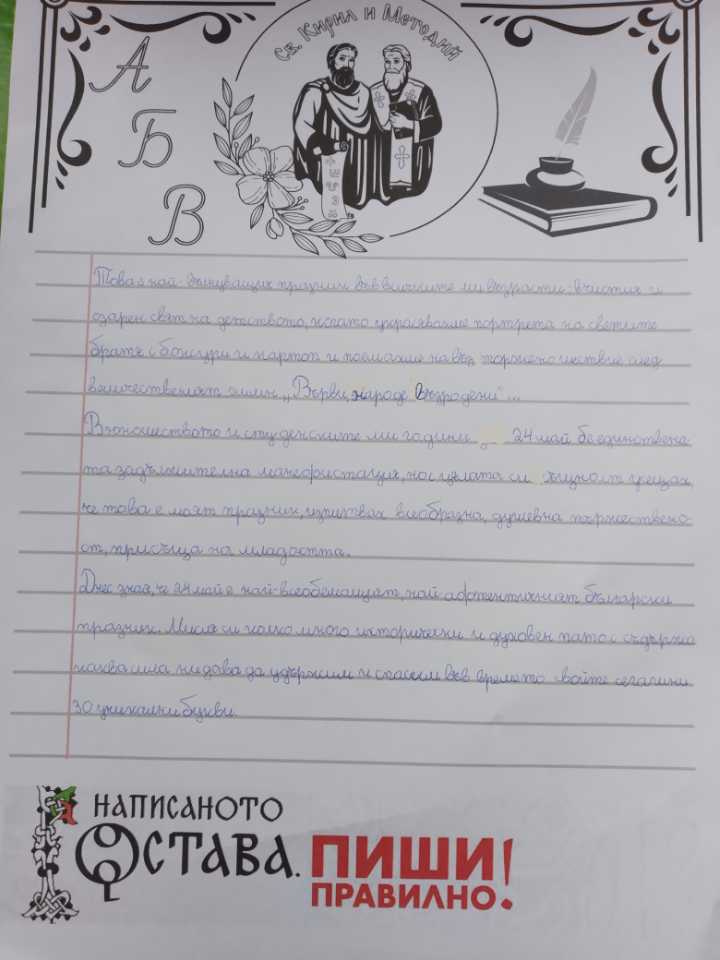 Св. Кирил и Методий
А
Б
В
Това е най-вълнуващия празник във всичките ми възрасти: в чистия и
озарен свят на детството, когато украсявахме портрета на светите
братя с божури и картон и поемахме на път тържествено шествие след
величественият химн „Върви, народе възродени"...
В юношеството и студенските ми години 24 май бе единствена
та задължителна манефистация, на с цялата си същност усещах,
че това е моят празник, изпитвах всеобразна, душевна тържествено
ст, присъща на младостта.
Днес зная, че 24 май е най-всеобемащият, най афтентичният български
празник. Мисля си колко много исторически и духовен пато с съдържа
каква сила ни дава да удържим и спасим във времето своите сегашни
30 уникални букви.
НАПИСАНОТО
ОСТАВА. ПИШИ!
ПРАВИЛНО.